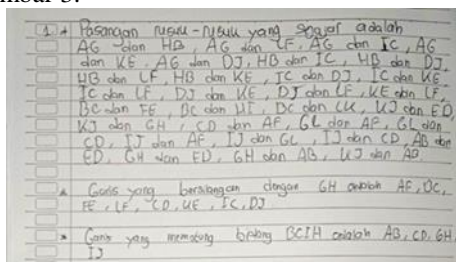 1. Pasangan rusuk-rusuk yang sejajar adalah
AG dan HB, AG dan LF, AG dan IC, AG
dan KE, AG dan DJ, HB dan IC, HB dan DJ,
HB dan LF, HB dan KE, IC dan DJ, IC dan KE
IC dan LF, DJ dan KE, DJ dan LF, KE dan LF,
BC dan FE, BC dan HI, BC dan LK, KJ dan ED,
KJ dan GH, CD dan AF, GL dan AF, GL dan
CD, IJ dan AF, IJ dan GL, IJ dan CD, AB dan
ED, GH dan ED, GH dan AB, KJ dan AB
Garis yang bersilangan dengan GH adalah AF, DC,
FE, LF, CD, KE, IC, DJ
Garis yang memotong bidang BCIH adalah AB, CD, GH,
IJ